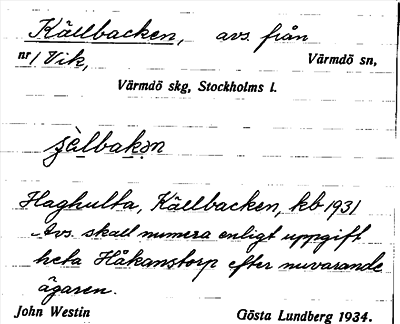 Källbacken, avs. från
nr 1 Vik, Värmdö sn,
Värmdö skg, Stockholms l.
Haghulta, Källbacken, kb 1931
Avs. skall numera enligt uppgift
heta Håkanstorp efter nuvarande
ägaren.
John Westin Gösta Lundberg 1934.